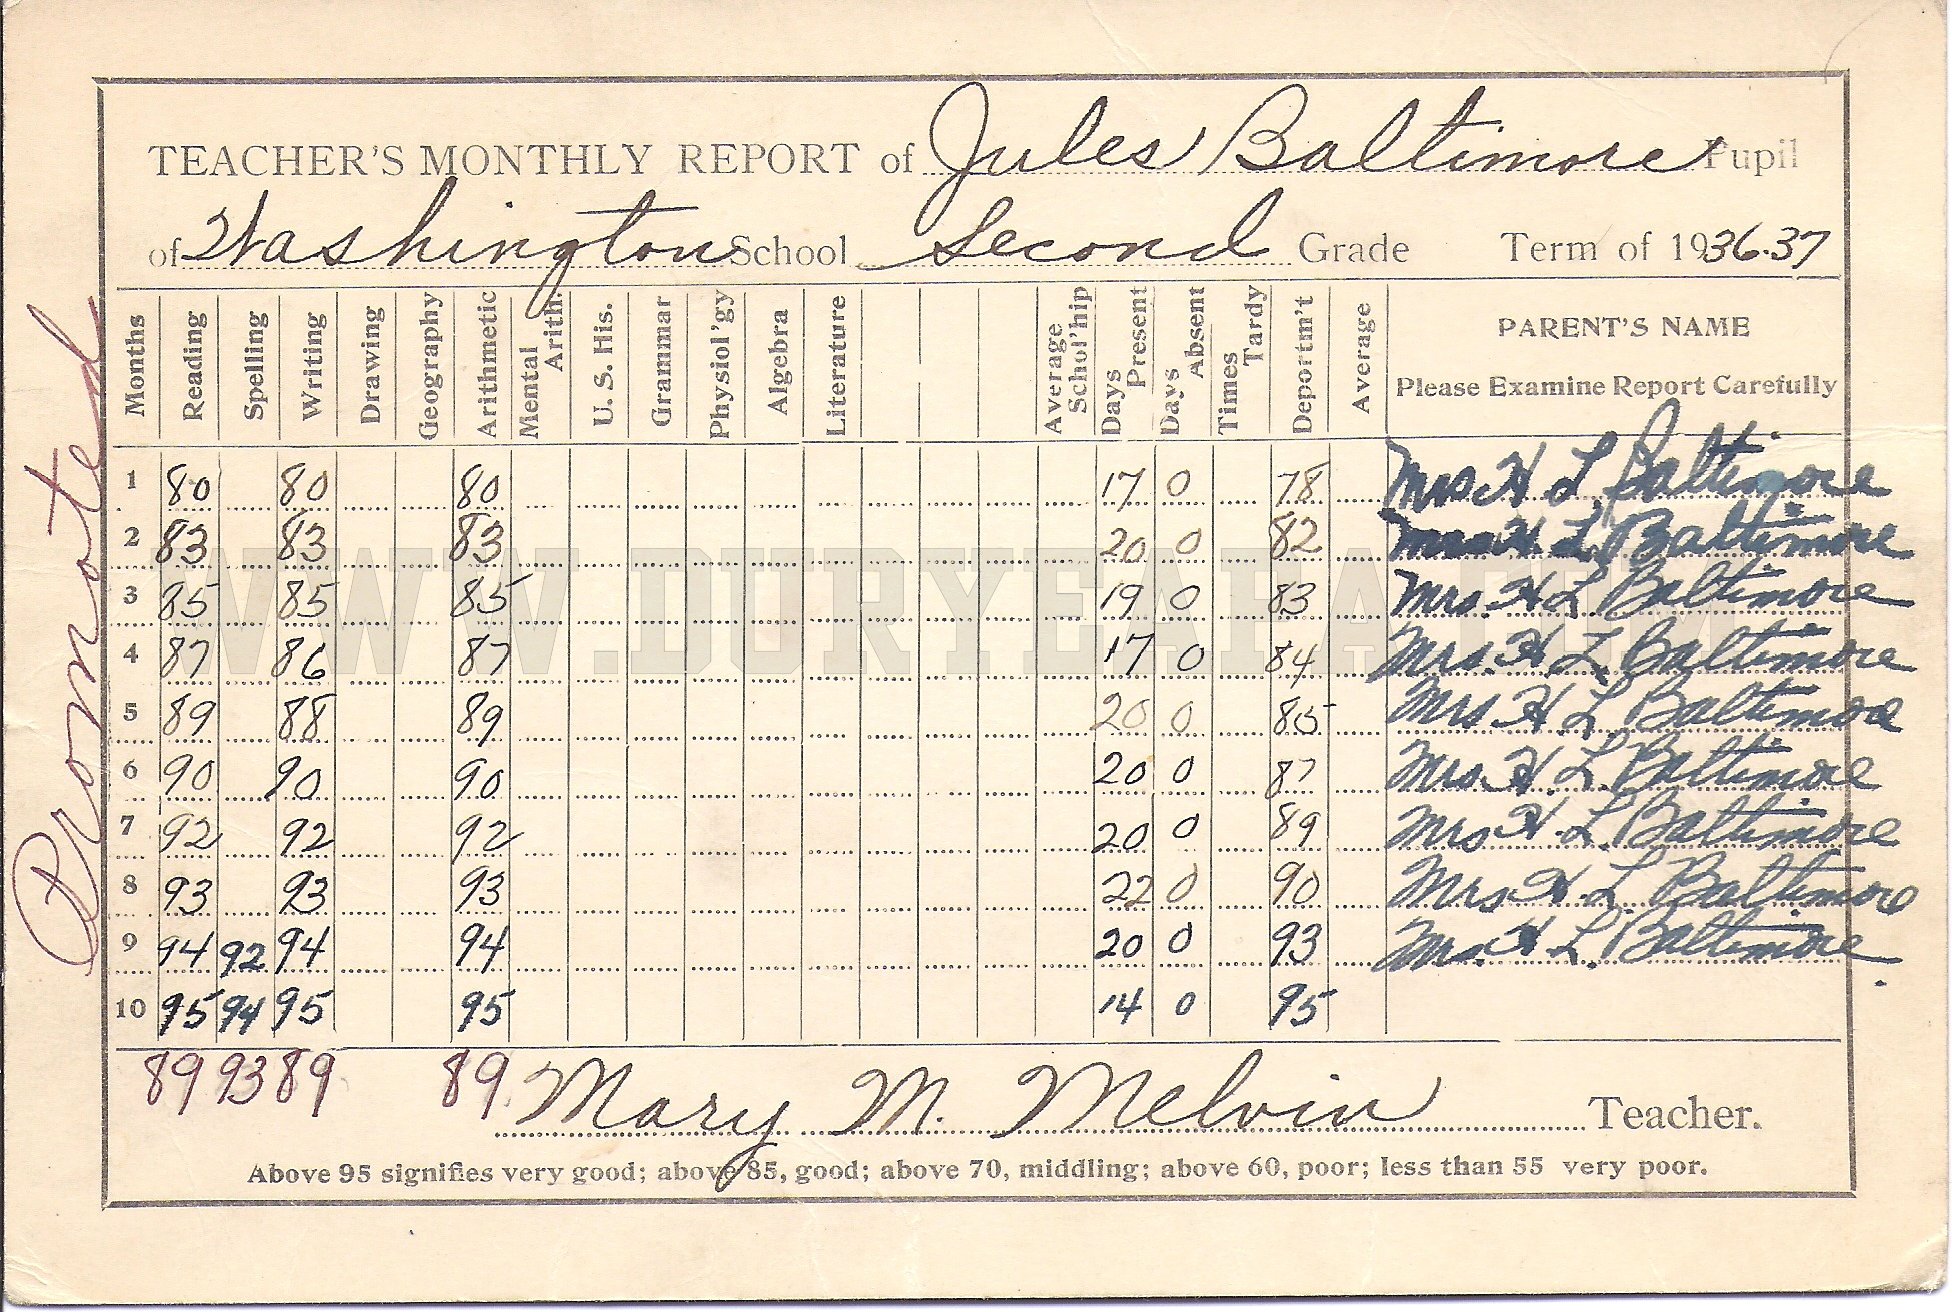 TEACHER'S MONTHLY REPORT of Jules Baltimore Pupil
of Washington School Second Grade Term of 1936-37
Months Reading Spelling Writing Drawing Geography Arithmetic Mental Arith. U. S. His. Grammar Physiol'gy Algebra Literature Average Schol'hip Days Present Days Absent Times Tardy Deportm't Average PARENT'S NAME
Please Examine Report Carefully
1 80 80 80 17 0 78 Mrs H L Baltimore
2 83 83 83 20 0 82 Mrs H. L. Baltimore
3 85 85 85 19 0 83 Mrs. H L. Baltimore
4 87 86 87 17 0 84 Mrs. H L. Baltimore
5 89 88 89 20 0 85 Mrs H L. Baltimore
6 90 90 90 20 0 87 Mrs. H. L. Baltimore
7 92 92 92 20 0 89 Mrs H. L. Baltimore
8 93 93 93 22 0 90 Mrs H L. Baltimore
9 94 92 94 94 20 0 93 Mrs. H L. Baltimore.
10 95 94 95 95 14 0 95
89 93 89 89 Mary M. Melvin Teacher.
Above 95 signifies very good; above 85, good; above 70, middling; above 60, poor; less than 55 very poor.
Promoted
WWW.DURYEAPA.COM